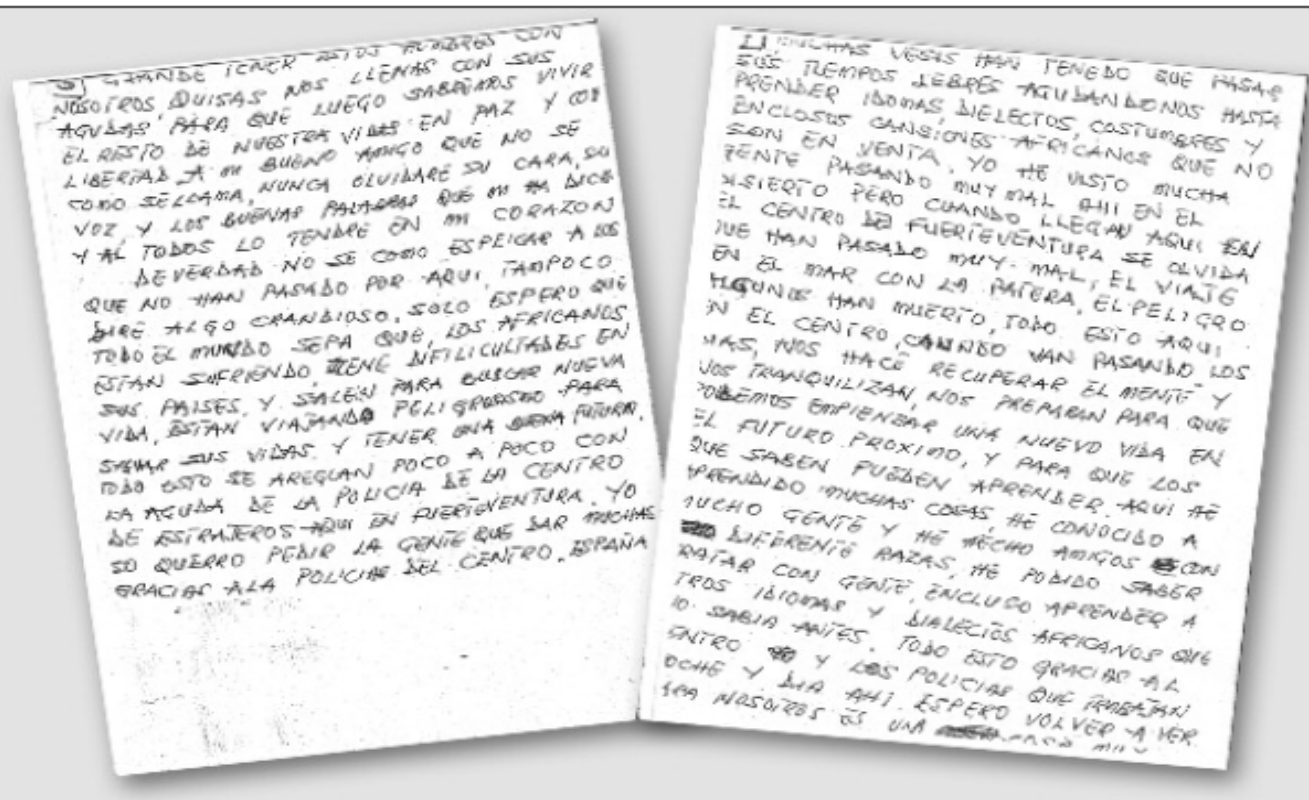 GRANDE TENER ESTOS HOMBRES CON
NOSOTROS QUISAS NOS LLENAS CON SUS
AGUDAS PARA QUE LUEGO SABREMOS VIVIR
EL RESTO DE NUESTRA VIDAS EN PAZ Y CON
LIBERTAD A MI BUENO AMIGO QUE NO SE
COMO SELLAMA, NUNCA OLVIDARE SU CARA, SU
VOZ Y LOS BUENAS PALABRAS QUE MI HA DICE
Y AL TODOS LO TENDRE EN MI CORAZON
DEVERDAD NO SE COMO ESPLICAR A LOS
QUE NO HAN PASADO POR AQUI, TAMPOCO
DIRE ALGO GRANDIOSO, SOLO ESPERO QUE
TODO EL MUNDO SEPA QUE, LOS AFRICANOS
ESTAN SUFRIENDO, TIENE DIFILICULTADES EN
SUS PAISES, Y SALEN PARA BUSCAR NUEVA
VIDA, ESTAN VIAJANDO PELIGROSO PARA
SALVAR SUS VIDAS Y TENER UNA BUENA FUTURA.
TODO ESTO SE AREGLAN POCO A POCO CON
LA AGUDA DE LA POLICIA DE LA CENTRO
DE ESTRAJEROS AQUI EN FUERTEVENTURA. YO
SO QUERRO PEDIR LA GENTE QUE DAR MUCHAS
GRACIAS A LA POLICIAS DEL CENTRO. ESPAÑA
MUCHAS VESES HAN TENEDO QUE PASAR
SUS TIEMPOS LEBRES AGUDANDONOS HASTA
PRENDER IDOMAS, DIELECTOS, COSTUMBRES Y
ENCLOSUS CANSIONES AFRICANOS QUE NO
SON EN VENTA, YO HE VISTO MUCHA
GENTE PASANDO MUY MAL AHI EN EL
DISIERTO PERO CUANDO LLEGAN AQUI EN
EL CENTRO DE FUERTEVENTURA SE OLVIDA
QUE HAN PASADO MUY MAL, EL VIAJE
EN EL MAR CON LA PATERA, EL PELIGRO
ALGUNOS HAN MUERTO, TODO ESTO AQUI
EN EL CENTRO, CUANDO VAN PASANDO LOS
DIAS, NOS HACE RECUPERAR EL MENTE Y
NOS TRANQUILIZAN, NOS PREPARAN PARA QUE
PODEMOS EMPIENZAR UNA NUEVO VIDA EN
EL FUTURO PROXIMO, Y PARA QUE LOS
QUE SABEN PUEDEN APRENDER. AQUI HE
APRENDIDO MUCHAS COSAS, HE CONOCIDO A
MUCHO GENTE Y HE HECHO AMIGOS CON
DIFERENTE RAZAS, HE PODIDO SABER
TRATAR CON GENTE, ENCLUSO APRENDER A
OTROS IDIOMAS Y DIALECTOS AFRICANOS QUE
NO SABIA ANTES. TODO ESTO GRACIAS AL
CENTRO Y LOS POLICIAS QUE TRABAJAN
NOCHE Y DIA AHI. ESPERO VOLVER A VER
PARA NOSOTROS ES UNA COSA MUY